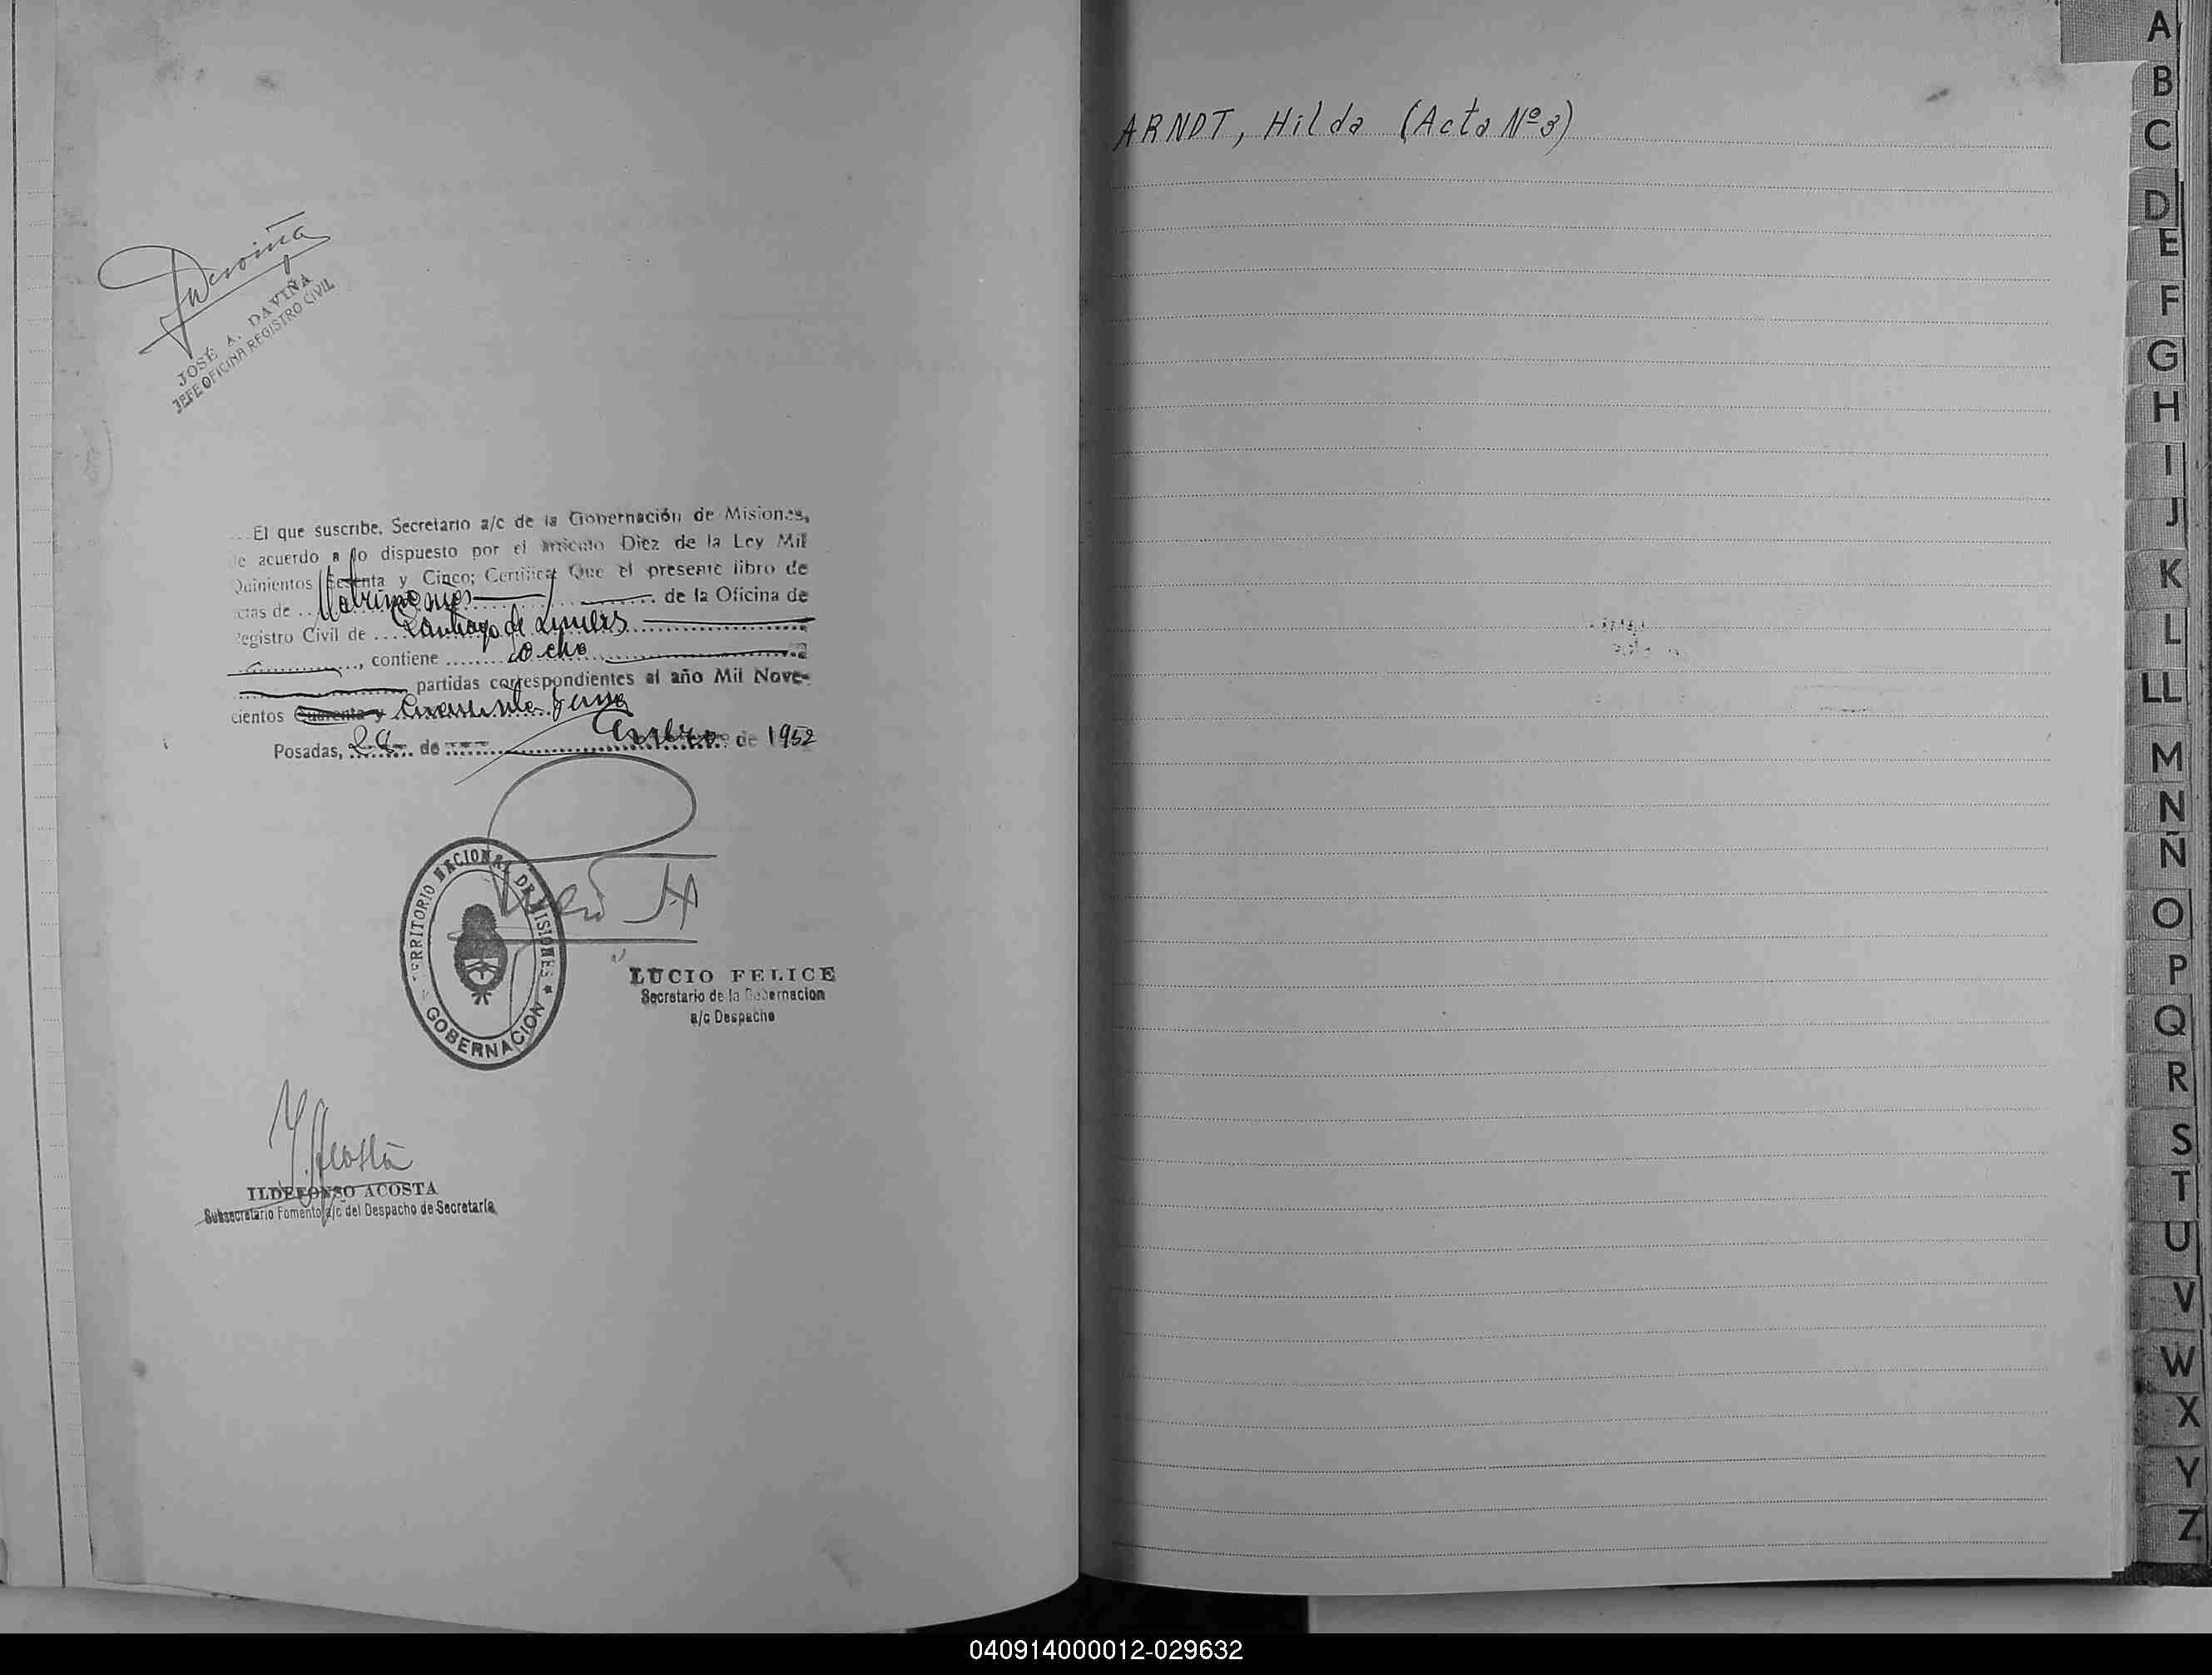 JOSÉ A. DAVIÑA
JEFE OFICINA REGISTRO CIVIL
El que suscribe, Secretario a/c de la Gobernación de Misiones,
de acuerdo a lo dispuesto por el artículo Diez de la Ley Mil
Quinientos Setenta y Cinco; Certifica: Que el presente libro de
actas de Matrimonios de la Oficina de
Registro Civil de Santiago de Liniers
contiene ocho
partidas correspondientes al año Mil Nove-
cientos Cuarenta y
Posadas, de Enero de 1952
TERRITORIO NACIONAL DE MISIONES
GOBERNACION
LUCIO FELICE
Secretario de la Gobernacion
a/c Despacho
Y. Acosta
ILDEFONSO ACOSTA
Subsecretario Fomento a/c del Despacho de Secretaría
ARNDT, Hilda (Acta Nº 3)
A
B
C
D
E
F
G
H
I
J
K
L
LL
M
N
Ñ
O
P
Q
R
S
T
U
V
W
X
Y
Z
040914000012-029632